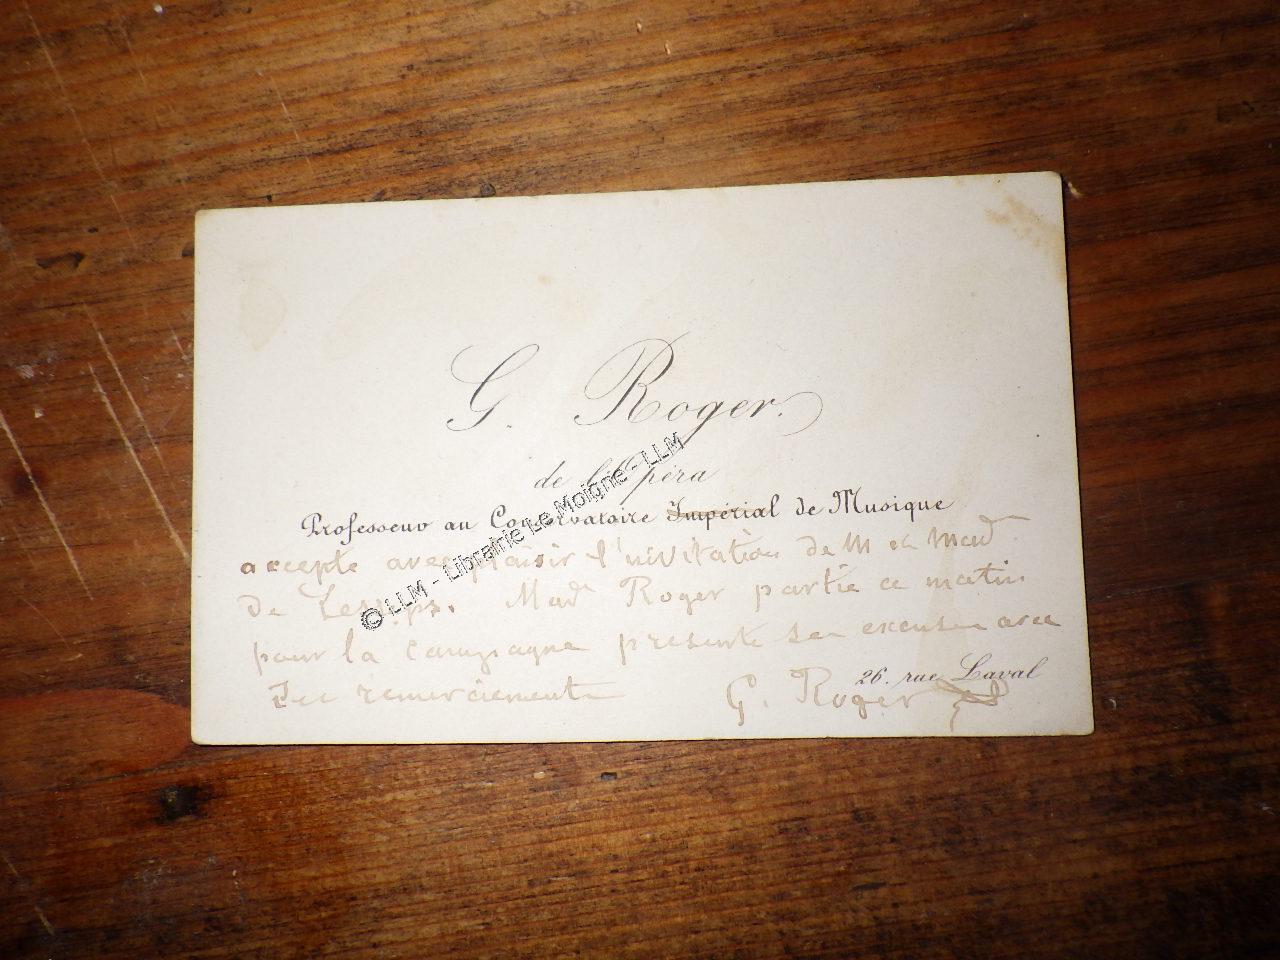 G. Roger.
de l'Opéra
Professeur au Conservatoire Impérial de Musique
accepte avec plaisir l'invitation de M et Mad
de Lesseps. Mad Roger partie ce matin
pour la campagne présente ses excuses avec
ses remerciements
26. rue Laval
G. Roger
© LLM - Librairie Le Moigne - LLM